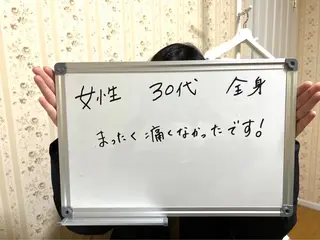 女性 30代 全身
まったく痛くなかったです!